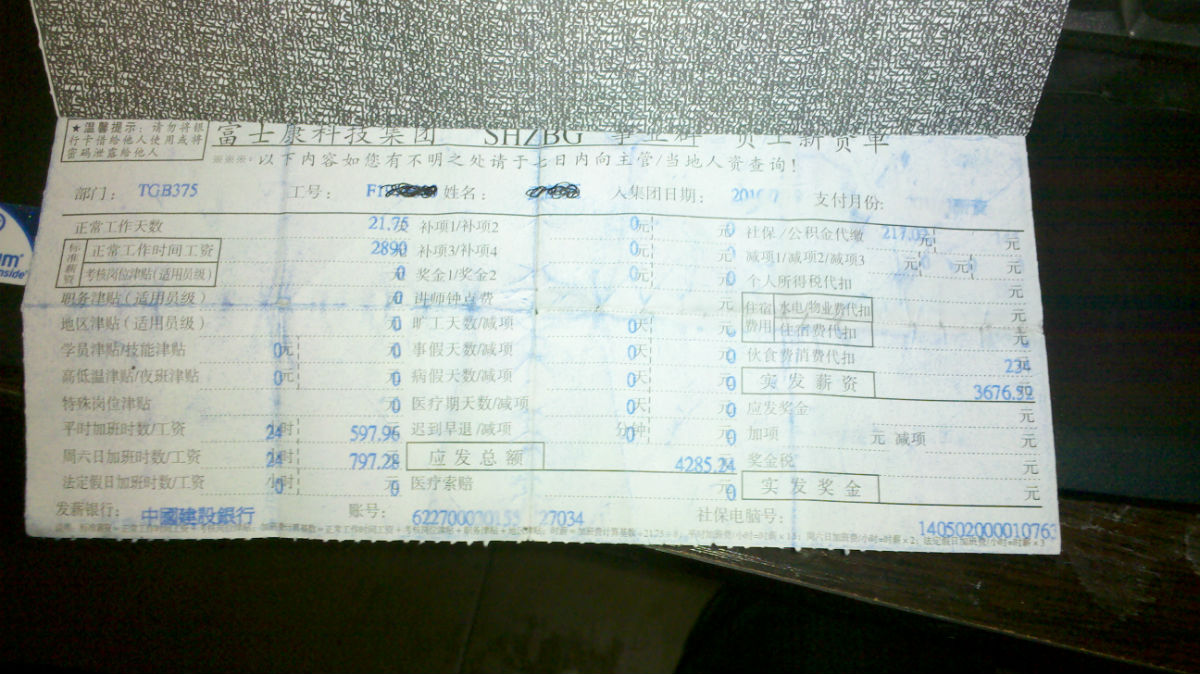 ★温馨提示：请勿将银
行卡借给他人使用或将
密码泄露给他人
富士康科技集团 SHZBG 事业群 员工薪资单
※※※：以下内容如您有不明之处请于七日内向主管/当地人资查询！
部门： TGB375 工号： 姓名： 入集团日期： 支付月份:
正常工作天数 21.75 天 补项1/补项2 0元 0 社保/公积金代缴 元 元
标准薪资 正常工作时间工资 2890 补项3/补项4 0元 0 减项1/减项2/减项3 元 元 元
考核岗位津贴(适用员级) 0 奖金1/奖金2 0元 0 个人所得税代扣 元
职务津贴(适用员级) 0 讲师钟点费 元 住宿费用 水电/物业费代扣 元
地区津贴(适用员级) 0 旷工天数/减项 0天 0 住宿费代扣 元
学员津贴/技能津贴 0元 0 事假天数/减项 0天 0 伙食费消费代扣 234元
高低温津贴/夜班津贴 0元 0 病假天数/减项 0天 0 实发薪资 元
特殊岗位津贴 0 医疗期天数/减项 0天 0 应发奖金 元
平时加班时数/工资 24小时 597.96 迟到早退/减项 0分钟 0 加项 元 减项 元
周六日加班时数/工资 24小时 797.28 应发总额 4285.24元 奖金税 元
法定假日加班时数/工资 0小时 0 医疗索赔 0元 实发奖金 元
发薪银行： 中國建設銀行 账号： 27034 社保电脑号： 140502000010763